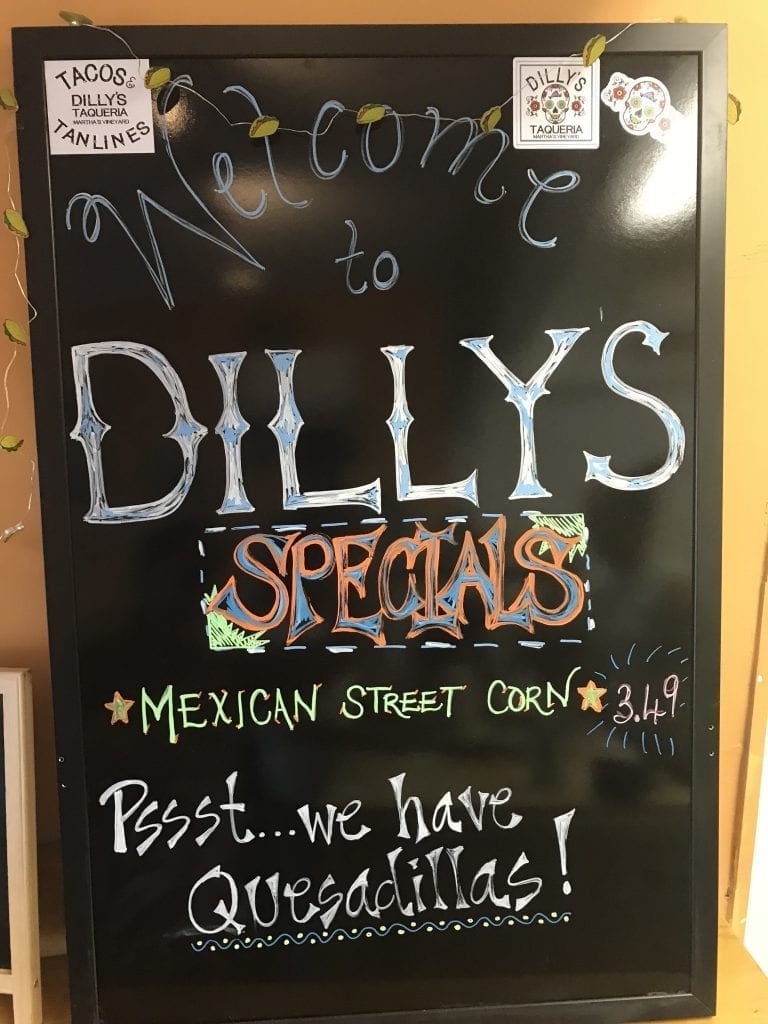 TACOS &
DILLY'S
TAQUERIA
MARTHA'S VINEYARD
TANLINES
DILLY'S
TAQUERIA
MARTHA'S VINEYARD
Welcome
to
DILLY'S
SPECIALS
MEXICAN STREET CORN 3.49
Pssst...we have
Quesadillas!